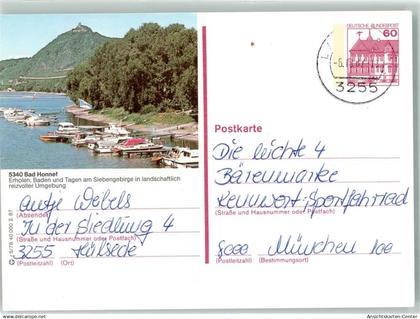 DEUTSCHE BUNDESPOST
60
3255
5340 Bad Honnef
Erholen, Baden und Tagen am Siebengebirge in landschaftlich
reizvoller Umgebung
Postkarte
Die leichte 4
Bärenmarke
Kennwort-Sportfahrrad
(Straße und Hausnummer oder Postfach)
8000 München 100
(Postleitzahl) (Bestimmungsort)
Antje Weibels
(Absender)
In der Siedlung 4
(Straße und Hausnummer oder Postfach)
3255 Hülsede
(Postleitzahl) (Ort)
Ansichtskarten-Center